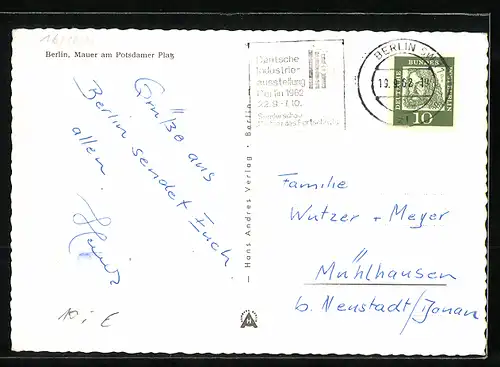 Berlin, Mauer am Potsdamer Platz
Deutsche
Industrie-
ausstellung
Berlin 1962
22.9.-7.10.
Sonderschau
BERLIN SW
19.9.62.-19
DEUTSCHE BUNDESPOST
10
Grüße aus
Berlin sendet Euch
allen
Heinz
— Hans Andres Verlag · Berlin —
Familie
Wutzer + Meyer
Mühlhausen
b. Neustadt/Donau
10,- €